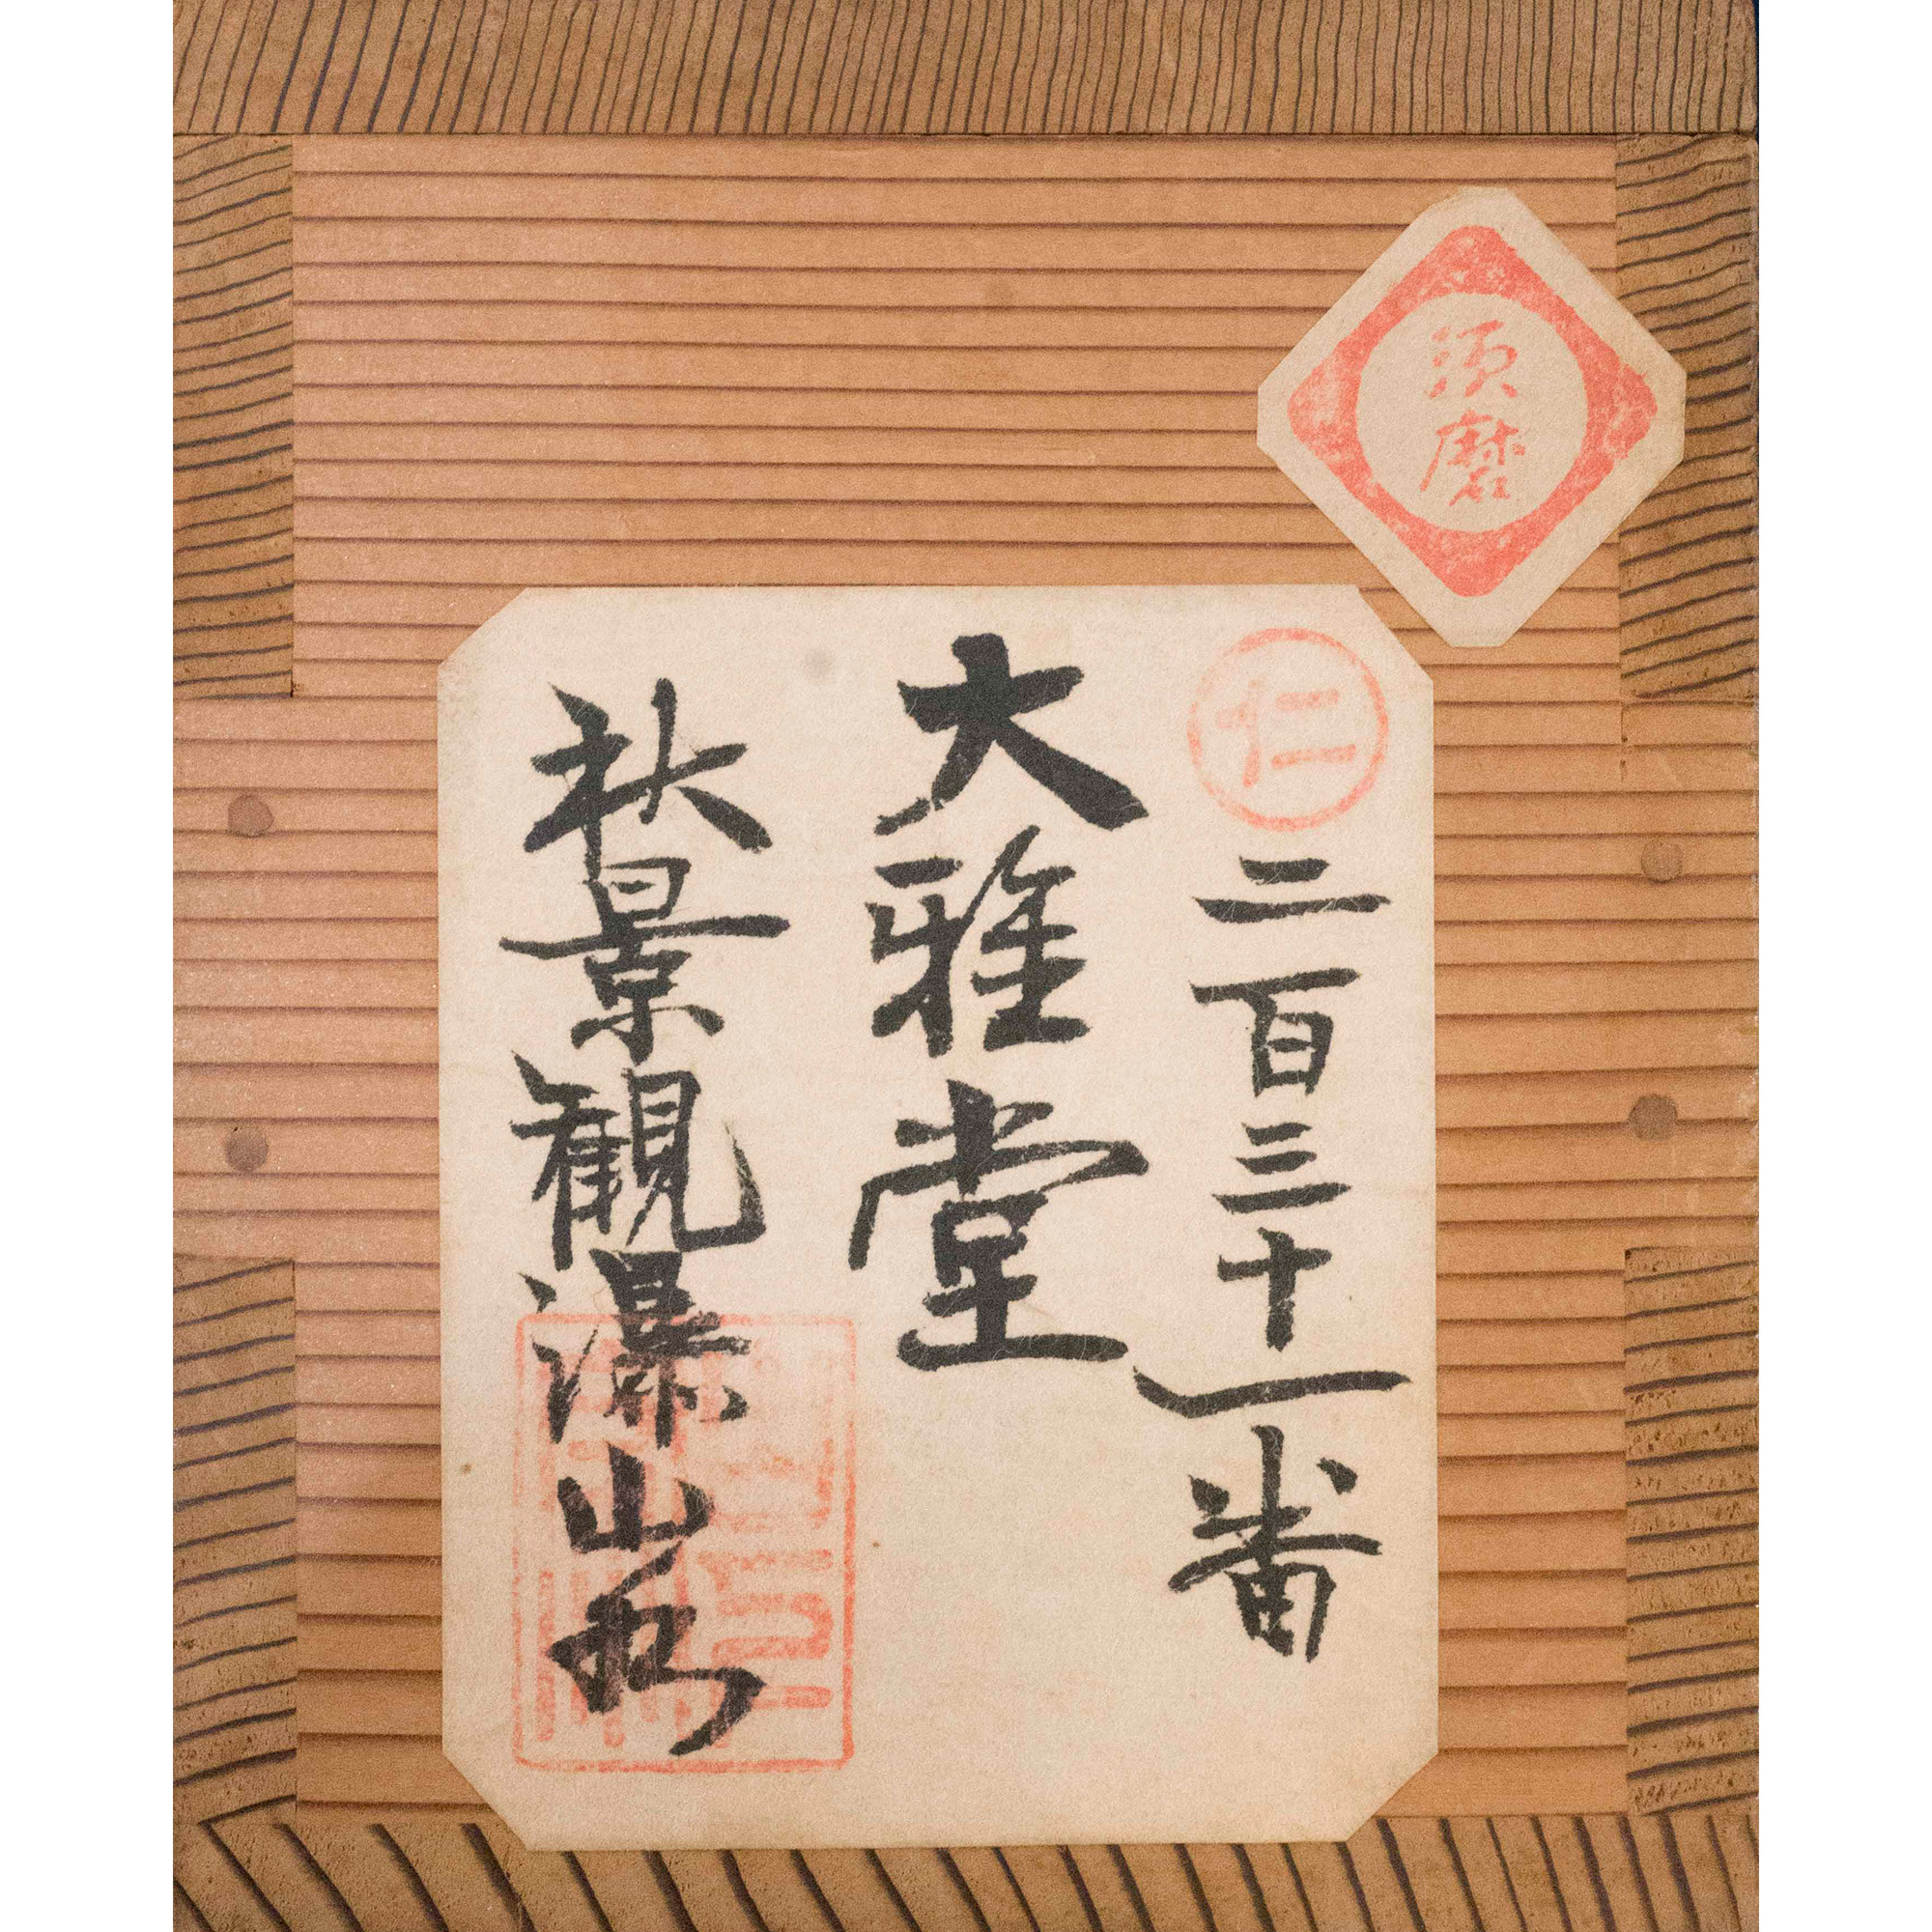 須磨
仁
二百三十一番
大雅堂
秋景観瀑山水